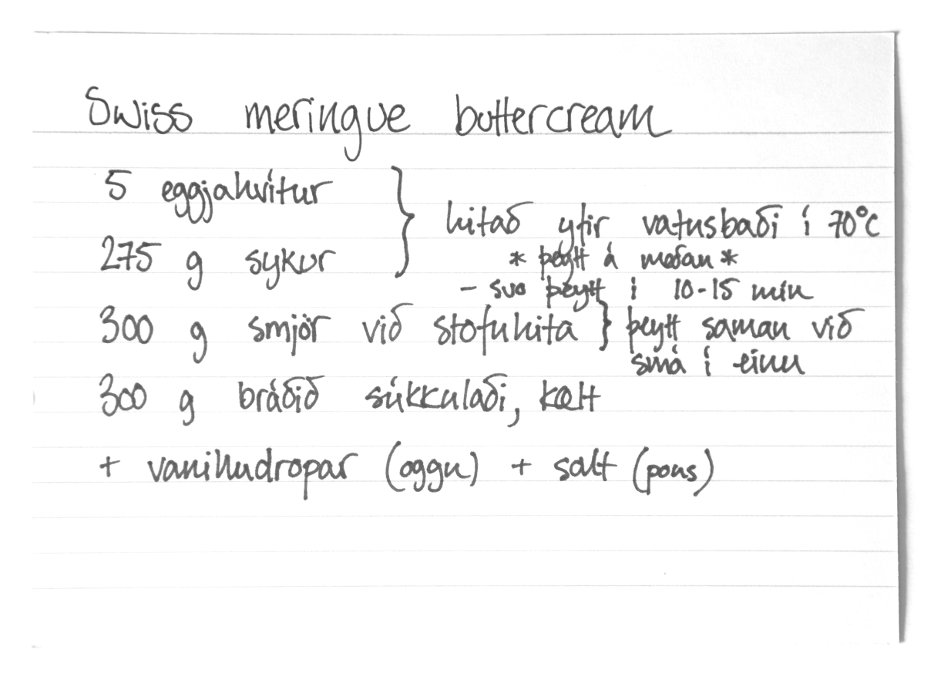 Swiss meringue buttercream
5 eggjahvítur
hitað yfir vatnsbaði í 70°C
275 g sykur
* þeytt á meðan *
- svo þeytt í 10-15 mín
300 g smjör við stofuhita } þeytt saman við
smá í einu
300 g bráðið súkkulaði, kælt
+ vanilludropar (oggu) + salt (pons)